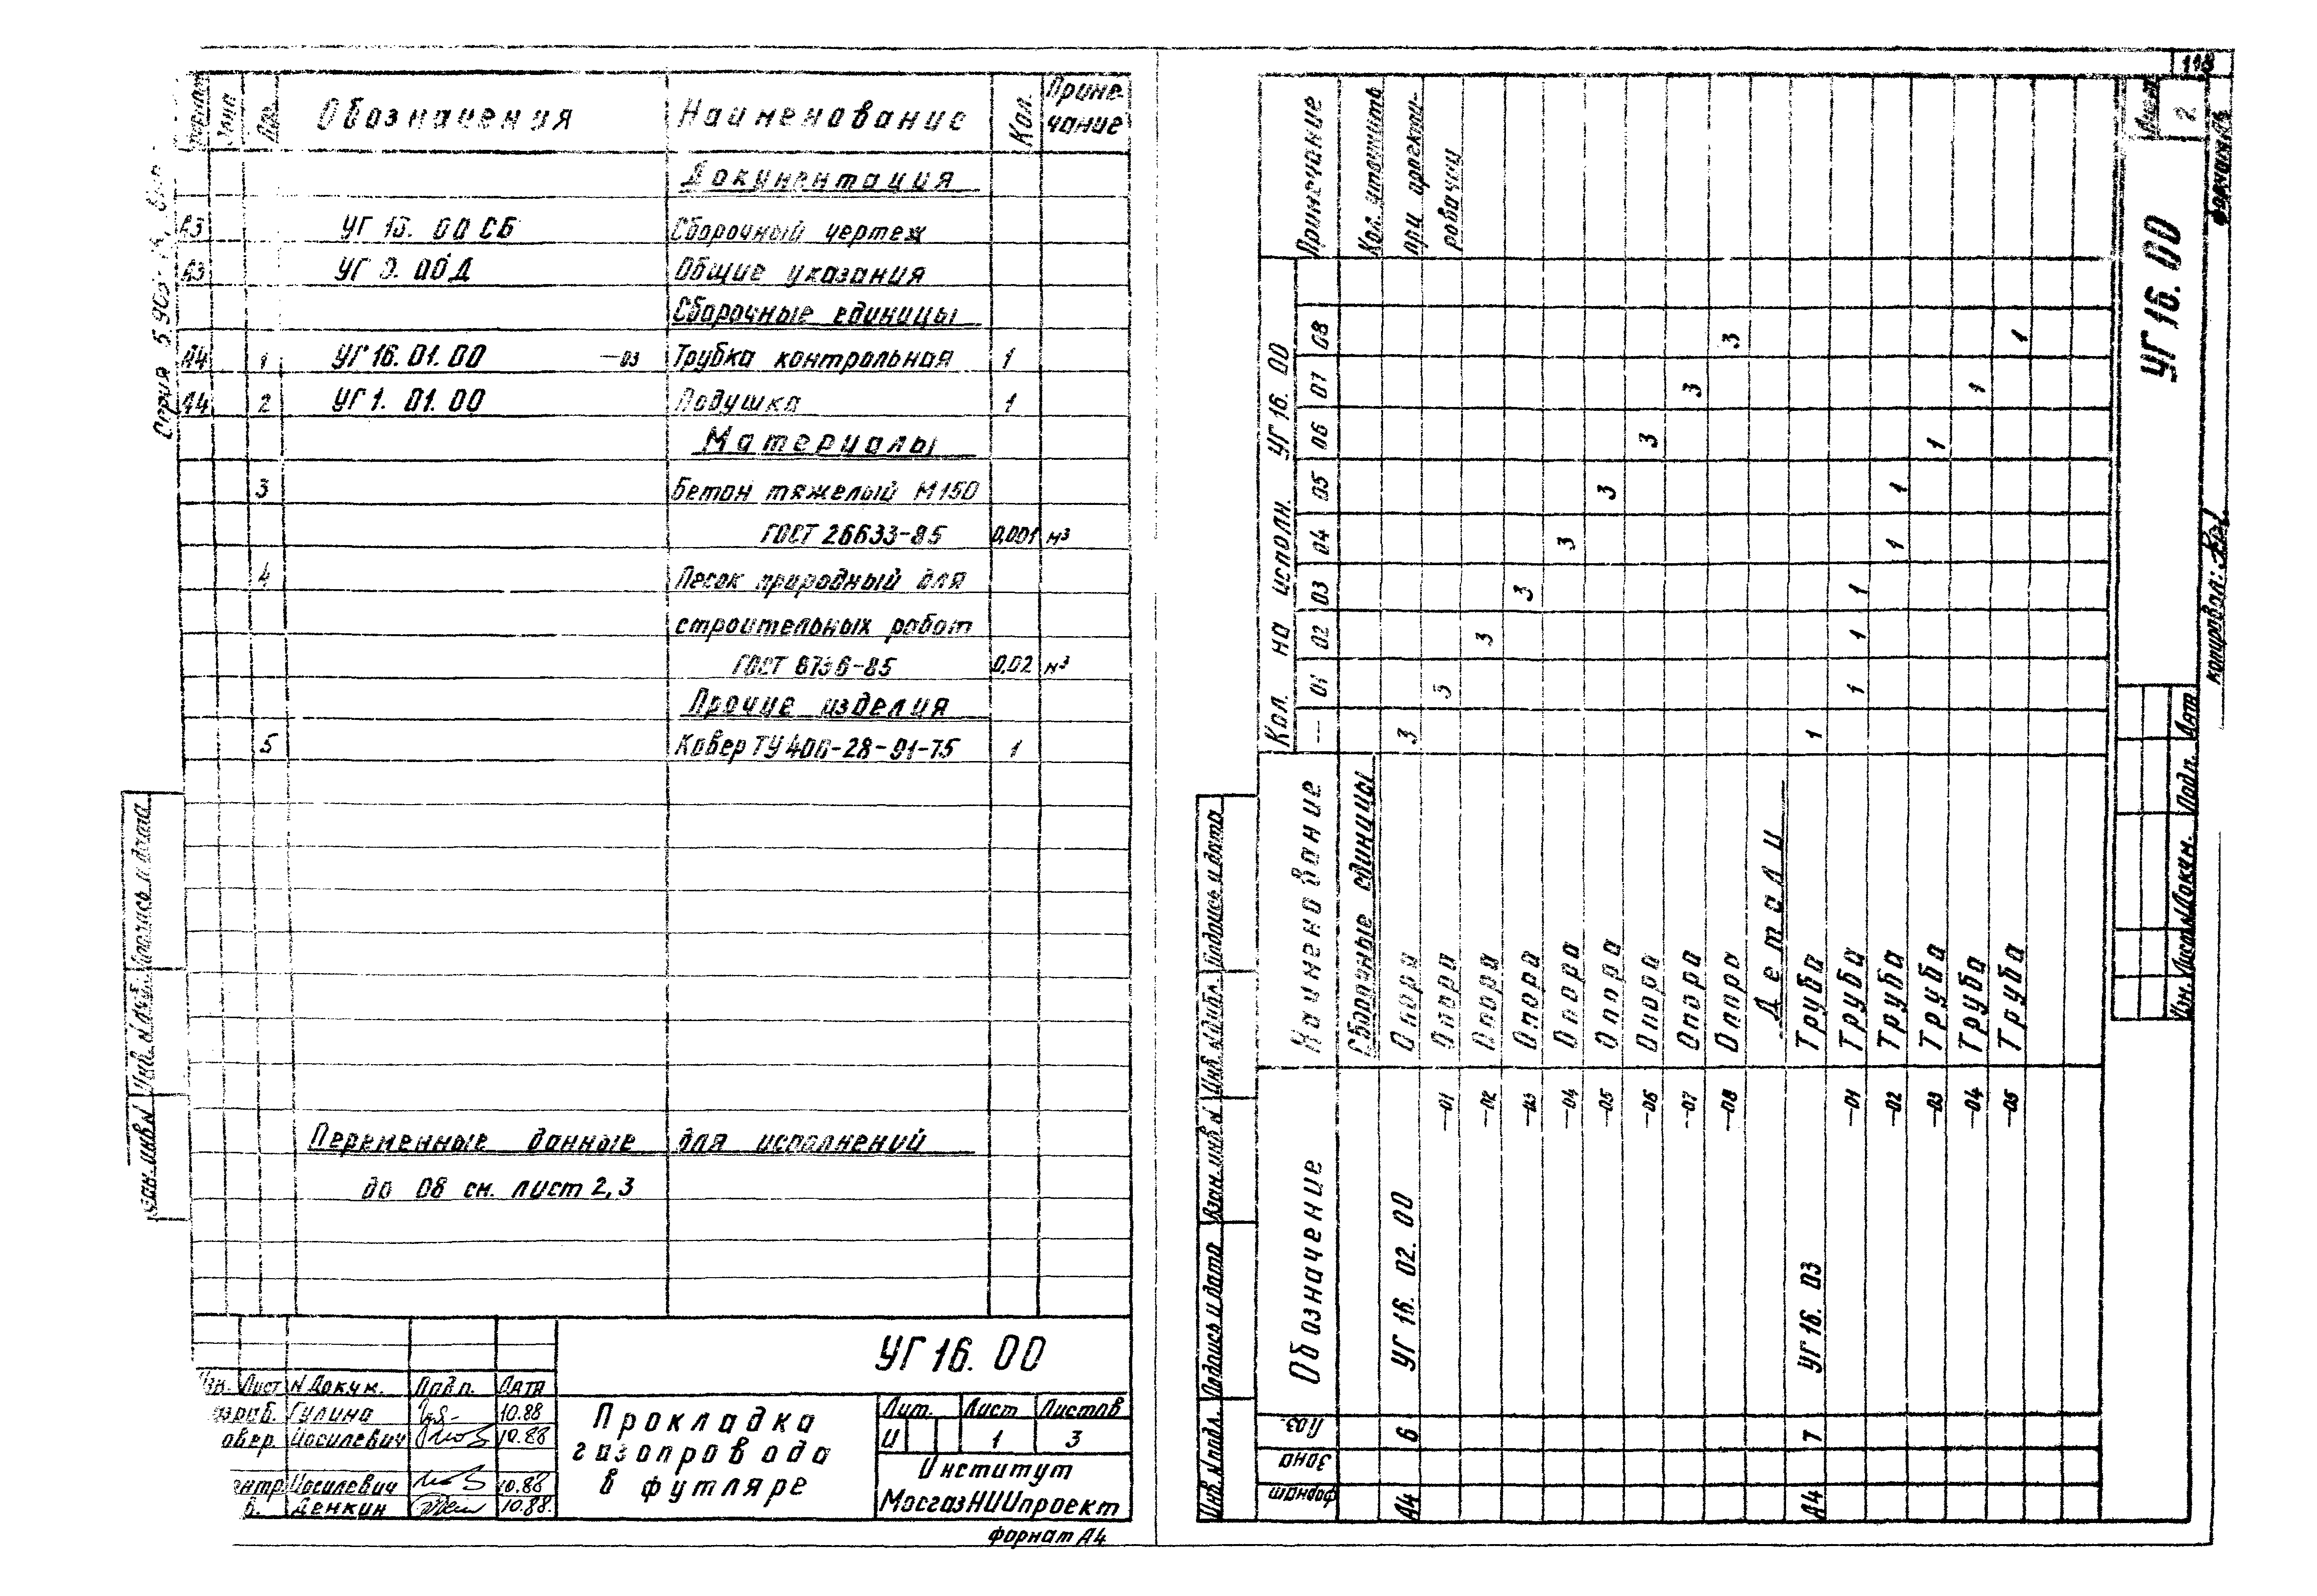 118
Серия 5.905-
Формат Зона Поз. Обозначения Наименование Кол. Приме-
чание
Документация
А3 УГ 16. 00 СБ Сборочный чертеж
А3 УГ 0. 00 Д Общие указания
Сборочные единицы
А4 1 УГ 16. 01. 00 -03 Трубка контрольная 1
А4 2 УГ 1. 01. 00 Подушка 1
Материалы
3 Бетон тяжелый М150
ГОСТ 26633-85 0,001 м³
4 Песок природный для
строительных работ
ГОСТ 8736-85 0,02 м³
Прочие изделия
5 Ковер ТУ 400-28-91-75 1
Переменные данные для исполнений
до 08 см. лист 2,3
Подпись и дата
Инв. N дубл.
Взам. инв N
УГ 16. 00
Изм. Лист N Докум. Подп. Дата
Разраб. Гулина 10.88
Провер. Иосилевич 10.88
Иосилевич 10.88
Денкин 10.88.
Прокладка
газопровода
в футляре
Лит. Лист Листов
И 1 3
Институт
МосгазНИИпроект
формат А4
Формат Зона Поз. Обозначение Наименование Кол. на исполн. УГ 16. 00 Примечание
— 01 02 03 04 05 06 07 08
Сборочные единицы Кол. уточнить
А4 6 УГ 16. 02. 00 Опора 3 при проекти-
-01 Опора 3 ровании
-02 Опора 3
-03 Опора 3
-04 Опора 3
-05 Опора 3
-06 Опора 3
-07 Опора 3
-08 Опора 3
Детали
А4 7 УГ 16. 03 Труба 1
-01 Труба 1 1 1
-02 Труба 1 1
-03 Труба 1
-04 Труба 1
-05 Труба 1
Инв. N подл. Подпись и дата Взам. инв N Инв. N дубл. Подпись и дата
Изм. Лист N Докум. Подп. Дат
УГ 16. 00
Лист
2
копировал:
формат А4